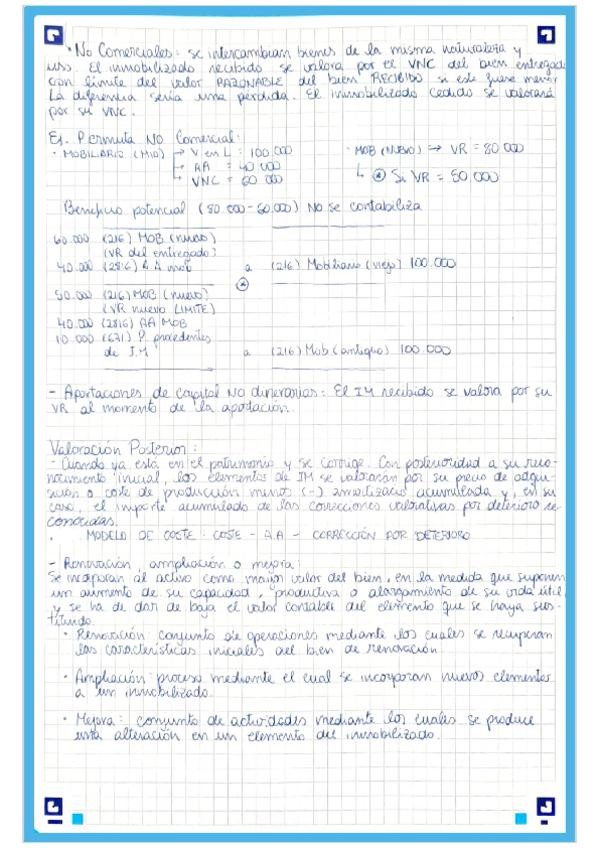 · No Comerciales: se intercambian bienes de la misma naturaleza y
uso. El inmobilizado recibido se valora por el VNC del bien entregado
con límite del valor RAZONABLE del bien RECIBIDO si este fuese menor
La diferencia sería una pérdida. El inmobilizado cedido se valorará
por su VNC.
Ej. Permuta NO Comercial:
· MOBILIARIO (MIO) → V en L = 100 000
→ AA = 40 000
→ VNC = 60 000
· MOB (NUEVO) → VR = 80 000
↳ * Si VR = 50 000
Beneficio potencial (80 000 - 60.000) NO se contabiliza
60.000 (216) MOB (nuevo)
(VR del entregado)
40.000 (2816) A.A mob a (216) Mobiliario (viejo) 100.000
*
50.000 (216) MOB (nuevo)
(VR nuevo LIMITE)
40.000 (2816) AA MOB
10 000 (671) P. procedentes
de I.M a (216) Mob (antiguo) 100.000
- Aportaciones de capital NO dinerarias: El IM recibido se valora por su
VR al momento de la aportación.
Valoración Posterior:
- Cuando ya está en el patrimonio y se corrige. Con posterioridad a su reco-
nocimiento inicial, los elementos de IM se valorarán por su precio de adqui-
sición o coste de producción menos (-) amortizació acumulada y, en su
caso, el importe acumulado de las correcciones valorativas por deterioro re-
conocidas.
· MODELO DE COSTE: COSTE - A.A - CORRECCIÓN POR DETERIORO
- Renovación, ampliación o mejora:
Se incorporan al activo como mayor valor del bien, en la medida que suponen
un aumento de su capacidad, productiva o alargamiento de su vida útil
y se ha de dar de baja el valor contable del elemento que se haya sus-
tituido
· Renovación: conjunto de operaciones mediante las cuales se recuperan
las características iniciales del bien de renovación.
· Ampliación: proceso mediante el cual se incorporan nuevos elementos
a un inmobilizado.
· Mejora: conjunto de actividades mediante las cuales se produce
una alteración en un elemento del inmobilizado.